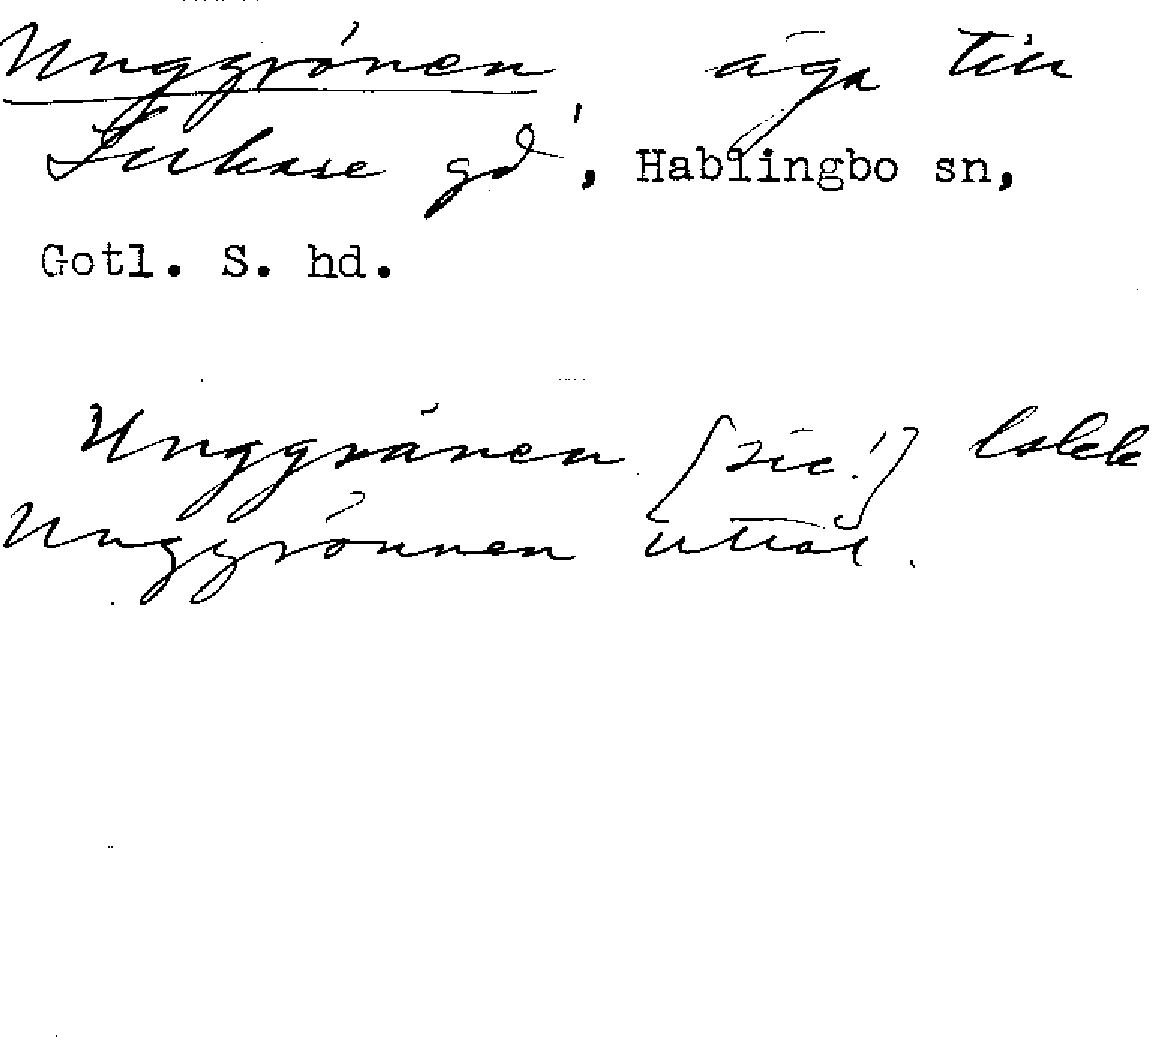 Unggrönen äga till
Lukase gd, Hablingbo sn,
Gotl. S. hd.
Unggränen [sic!]
Unggrönnen uttal.